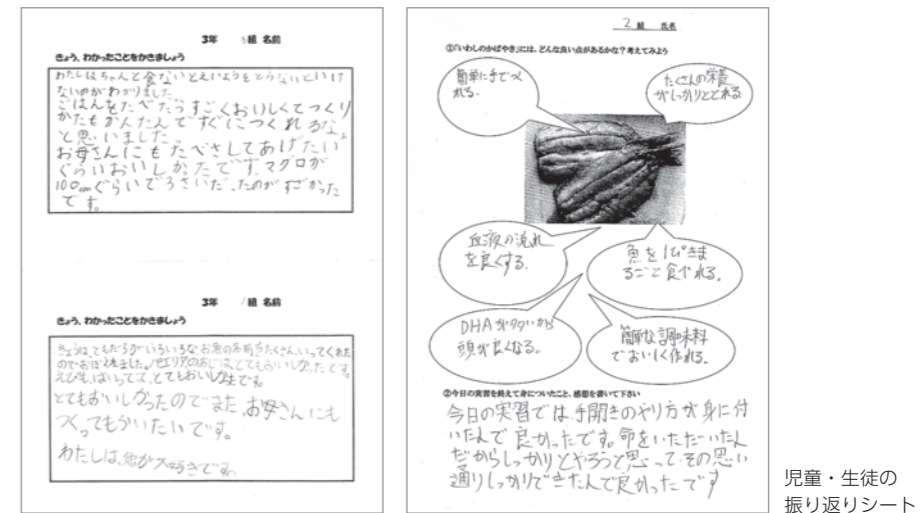 3年 3組 名前
きょう、わかったことをかきましょう
わたしはちゃんと食ないとえいようをとらないといけ
ないのがわかりました
ごはんをたべたらすごくおいしくてつくり
かたもかんたんですぐにつくれるなぁ
と思いました。
お母さんにもたべさしてあげたい
ぐらいおいしかったです。マグロが
100cmぐらいで
のがすごかった
です。
3年 1組 名前
きょう、わかったことをかきましょう
きょうは、ともだちがいろいろなお魚の名前をたくさん、いってくれた
のでおぼえれました。パエリアのあじは、とてもおいしかったです。
えびも、はいってて、とてもおいし
です。
とてもおいしかったのでまた、お母さんにも
つくってもらいたいです。
わたしは、魚が大好きです。
2組 氏名
①「いわしのかばやき」には、どんな良い点があるかな?考えてみよう
簡単に手でべ
れる。
たくさんの栄養
がしっかりととれる
血液の流れ
を良くする。
魚を1ぴきま
るごと食べれる。
DHAが多いから
頭が良くなる。
簡単な調味料
でおいしく作れる。
②今日の実習を終えて身についたこと、感想を書いて下さい
今日の実習では手開きのやり方が身に付
いたんで良かったです。命をいただいたん
だからしっかりとやろうと思って、その思い
通りしっかりできたんで良かったです
児童・生徒の
振り返りシート